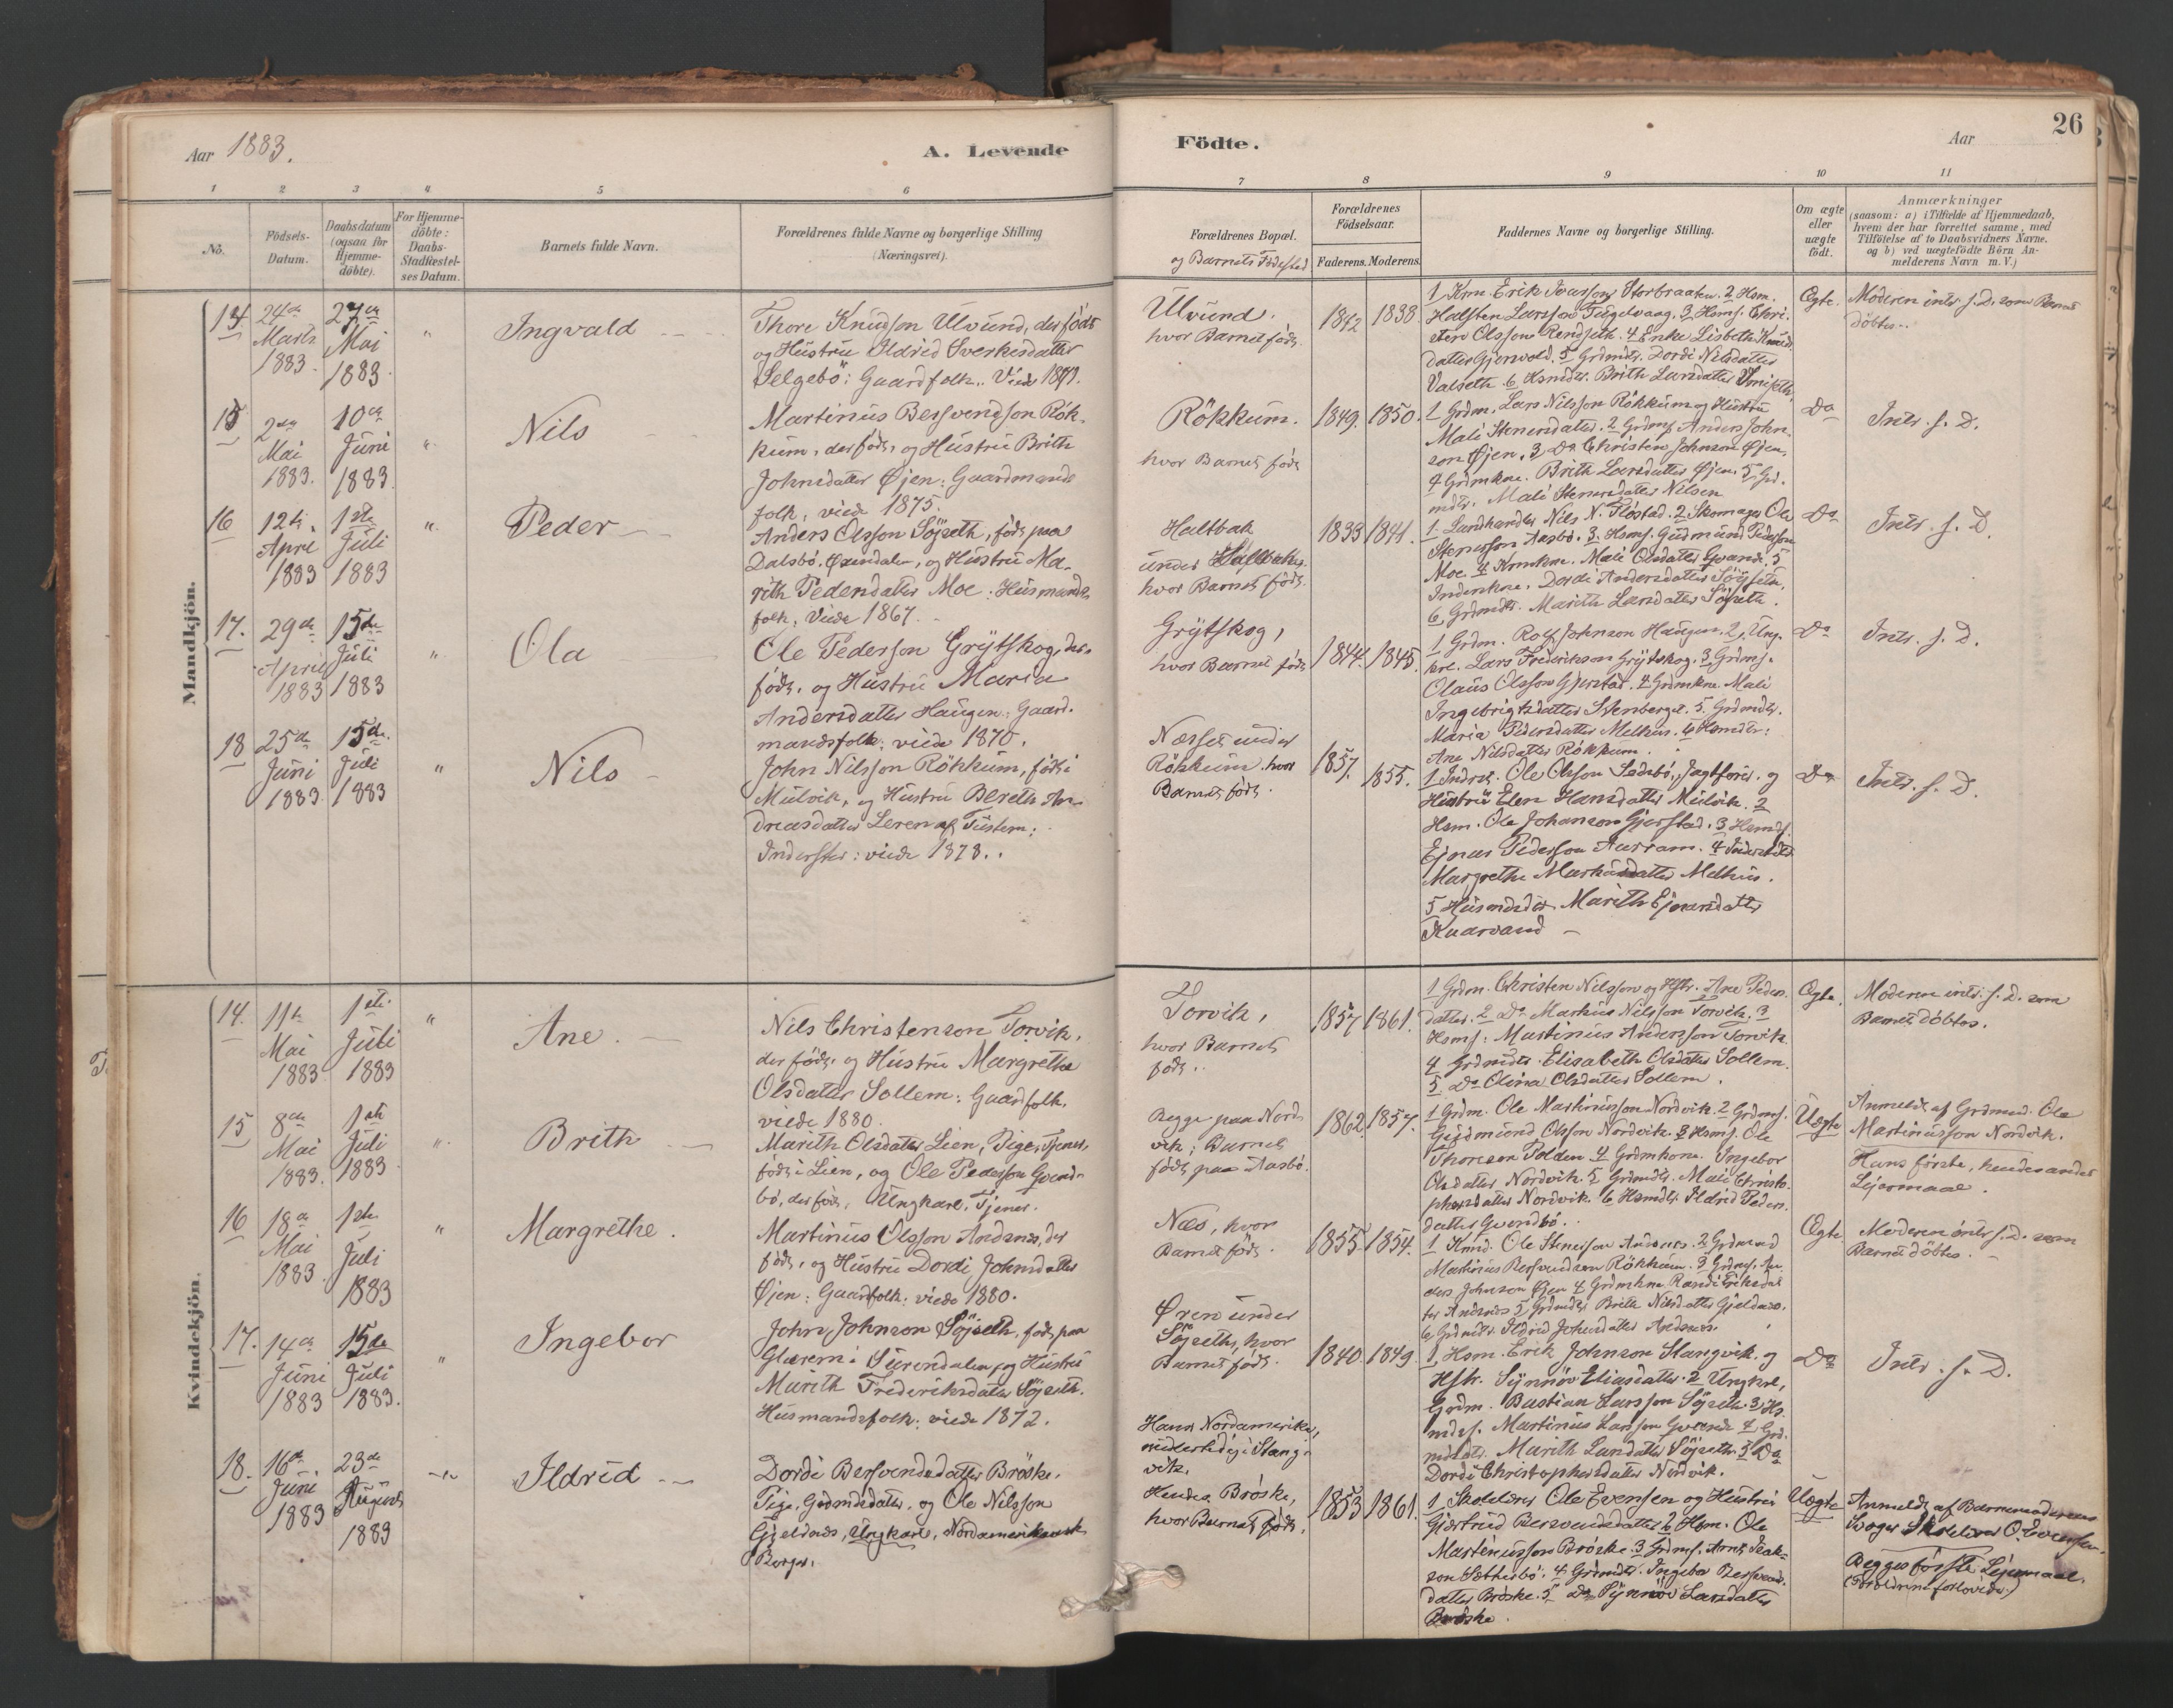 Aar 1883.
A. Levende
Födte.
Aar
26
1
2
3
4
5
6
7
8
9
10
11
No.
Födsels-
Datum.
Daabsdatum
(ogsaa for
Hjemme-
döbte).
For Hjemme-
döbte:
Daabs-
Stadfæstel-
ses Datum.
Barnets fulde Navn.
Forældrenes fulde Navne og borgerlige Stilling
(Næringsvei).
Forældrenes Bopæl.
og Barnets Fødested
Forældrenes
Födselsaar.
Faderens.
Moderens.
Faddernes Navne og borgerlige Stilling.
Om ægte
eller
uægte
födt.
Anmærkninger
(saasom: a) i Tilfælde af Hjemmedaab,
hvem der har forrettet samme, med
Tilföielse af to Daabsvidners Navne.
og b) ved uægtefödte Börn An-
melderens Navn m. V.)
Mandkjön.
14
24de
Marts
1883.
27de
Mai
1883.
"
Ingvald
Thore Knudson Ulvund, der födt
og Hustru Ildrid Sverkesdatter
Selgebö: Gaardfolk.. Viede 1873.
Ulvund.
hvor Barnet födt.
1842
1838
1 Krm. Erik Iversson Storbraaten. 2 Hsm.
Halsten Larsson Fugelvaag. 3 Hsmf. Chri-
sten Olsson Rendseth. 4 Enke Lisbeth Knuds
datter Gjersvold. 5 Grdmdtr. Dordi Nilsdatter
Valseth. 6 Hsmdtr. Brith Larsdatter
Ægte.
Moderen intr. s. D. som Barnet
döbtes.
15
2den
Mai
1883.
10de
Juni
1883.
"
Nils
Martinus Bersvendson Rök-
kum, der födt, og Hustru Brith
Johnsdatter Øjen: Gaardmands
folk, viede 1875.
Rökkum.
hvor Barnet födt
1849.
1850.
1 Grdm. Lars Nilsson Rökkum og Hustru
Mali Stenersdatter. 2 Grdmf. Anders John-
son Øjen. 3 Do Christen Johnson Øjen.
4 Grdmkne. Brith Larsdatter Øjen. 5 Grd.
mdtr. Mali Stenersdatter Nilsen
Do
Intr. s. D.
16
12te
April
1883
1ste
Juli
1883
"
Peder
Anders Olsson Söjseth, födt paa
Dalsbö, Øxendalen, og Hustru Ma-
rith Pedersdatter Moe: Husmands
folk; Viede 1867.
Haltbak
under
hvor Barnet födt.
1833
1841.
1. Landhandler Nils N. Flöstad. 2 Skomager Ole
Stenersson Aasbö. 3. Hsmf. Gudmund Pedersson
Moe. 4 Krmkne. Mali Olsdatter Qvande. 5
Inderstkne. Dordi Andersdatter Söjseth.
6 Grdmdtr. Marith Larsdatter Söjseth.
Do
Intr. s. D.
17.
29de
April
1883
15de
Juli
1883
"
Ola
Ole Pedersson Grytskog, der
födt. og Hustru Maria
Andersdatter Haugen: Gaard-
mandsfolk; viede 1870.
Grytskog,
hvor Barnet födt
1844.
1845.
1 Grdm. Rolf Johnson Haugen. 2, Ung-
krl. Lars Frederikson Grytskog. 3 Grdmf.
Olaus Olsson Gjerstad. 4 Grdmkne Mali
Ingebrigtsdatter Stenberget. 5. Grdmdtr.
Maria Pedersdatter Melhus. 6 Hsmdtr:
Ane Nilsdatter Rökkum.
Do
Intr. s. D.
18
25de
Juni
1883.
15de
Juli
1883
"
Nils
John Nilsson Rökkum, födt i
Mulvik, og Hustru Bereth An-
dreasdatter Leren af Tustern:
Inderster: viede 1878.
Næsset under
Rökkum. hvor
Barnet födt.
1857.
1855.
1 Indrst. Ole Olsson Sedebö, Jagtförer. og
Hustru Elen Hansdatter Mulvik. 2
Hsm. Ole Johanson Gjerstad. 3 Hsmdf.
Ejnar Pedersson Aasram. 4
Margrethe Markusdatter Melhus.
5 Husmdsdtr Marith Ejnarsdatter
Kvarvand
Do
Intr. s. D.
Kvindekjön.
14.
11te
Mai
1883
1ste
Juli
1883
"
Ane.
Nils Christenson Torvik,
der födt. og Hustru Margrethe
Olsdatter Sollem: Gaardfolk,
viede 1880.
Torvik,
hvor Barnet
födt.
1857
1861.
1 Grdm. Christen Nilsson og Hstr. Ane Peders
datter. 2 Do Markus Nilsson Torvik. 3
Hsmf: Martinus Andersson Torvik
4 Grdmdtr. Elisabeth Olsdatter Sollem.
5. Do Olina Olsdatter Sollem.
Ægte.
Moderen intr. s. D. som
Barnet döbtes.
15
8de
Mai
1883.
1ste
Juli
1883
"
Brith
Marith Olsdatter Lien, Pige, Tjener,
födt i Lien, og Ole Pedersson Gvend-
bö, der födt, Ungkarl, Tjener.
Begge paa Nord-
vik; Barnet
födt paa Aasbö.
1862.
1857.
1 Grdm. Ole Martinusson Nordvik. 2 Grdmf.
Gudmund Olsson Nordvik. 3 Hsmf. Ole
Thoreson Polden 4 Grdmkone. Ingebor
Olsdatter Nordvik. 5 Grdmdtr. Mali Christo-
phersdatter Nordvik. 6 Hsmdtr. Ildrid Peders-
datter Gvendbö.
Uægte
Anmeldt af Grdmand. Ole
Martinusson Nordvik.
Hans förste, hendes andet
Lejermaal.
16
18de
Mai
1883
1ste
Juli
1883
"
Margrethe.
Martinus Olsson Andsnæs, der
födt, og Hustru Dordi Johnsdatter
Øjen: Gaardfolk: viede 1880.
Næs, hvor
Barnet födt.
1855.
1854.
1 Kmd. Ole Stenerson Andsnæs. 2 Grdmand
Martinus Bersvendson Rökkum. 3 Grdmf. An-
ders Johnson Øjen 4 Grdmkne Randi Eriksdat
ter Andsnæs 5 Grdmdtr Brith Nilsdatter Gjeldnæs.
6 Grdmdtr. Ildrid Johnsdatter Andsnæs.
Ægte
Moderen intr. s. D. som
Barnet döbtes.
17.
14de
Juni
1883
15de
Juli
1883.
"
Ingebor
John Johnson Söjseth, födt paa
Glærem i Surendalen, og Hustru
Marith Frederiksdatter Söjseth.
Husmandsfolk: viede 1872.
Øren under
Söjseth, hvor
Barnet födt.
1840.
1849.
1, Hsm. Erik Johnson Stangvik. og
Hstr. Synnöv Eliasdatter. 2 Ungkrl,
Grdm. Bastian Larsson Söjseth. 3 Hs.
mdsf. Martinus Larsson Qvande 4 Grd.
mdsdtr. Marith Larsdatter Söjseth. 5 Do
Dordi Christophersdatter Nordvik.
Do
Intr. s. D.
18.
16de
Juni
1883
23de
August
1883
"
Ildrid
Dordi Bersvendsdatter Bröske,
Pige, Grdmdsdatter, og Ole Nilsson
Gjeldnæs, Ungkarl, Nordamerikansk
Borger.
Hans Nordamerika,
midlertidig i Stang-
vik.
Hendes Bröske,
hvor Barnet födt.
1853
1861.
1, Skolelærer Ole Evensen og Hustru
Gjertrud Bersvendsdatter. 2 Hsm. Ole
Martinusson Bröske. 3 Grdmf. Arnt Isak-
son Sætherbö. 4 Grdmdtr. Ingebor Bersvend-
datter Bröske. 5 Do Synnöv Larsdatter
Bröske.
Uægte
Anmeldt af Barnemoderens
Svoger Skolelærer O. Evensen.
Begges förste Lejermaal.
(Forældrene forlovede.)